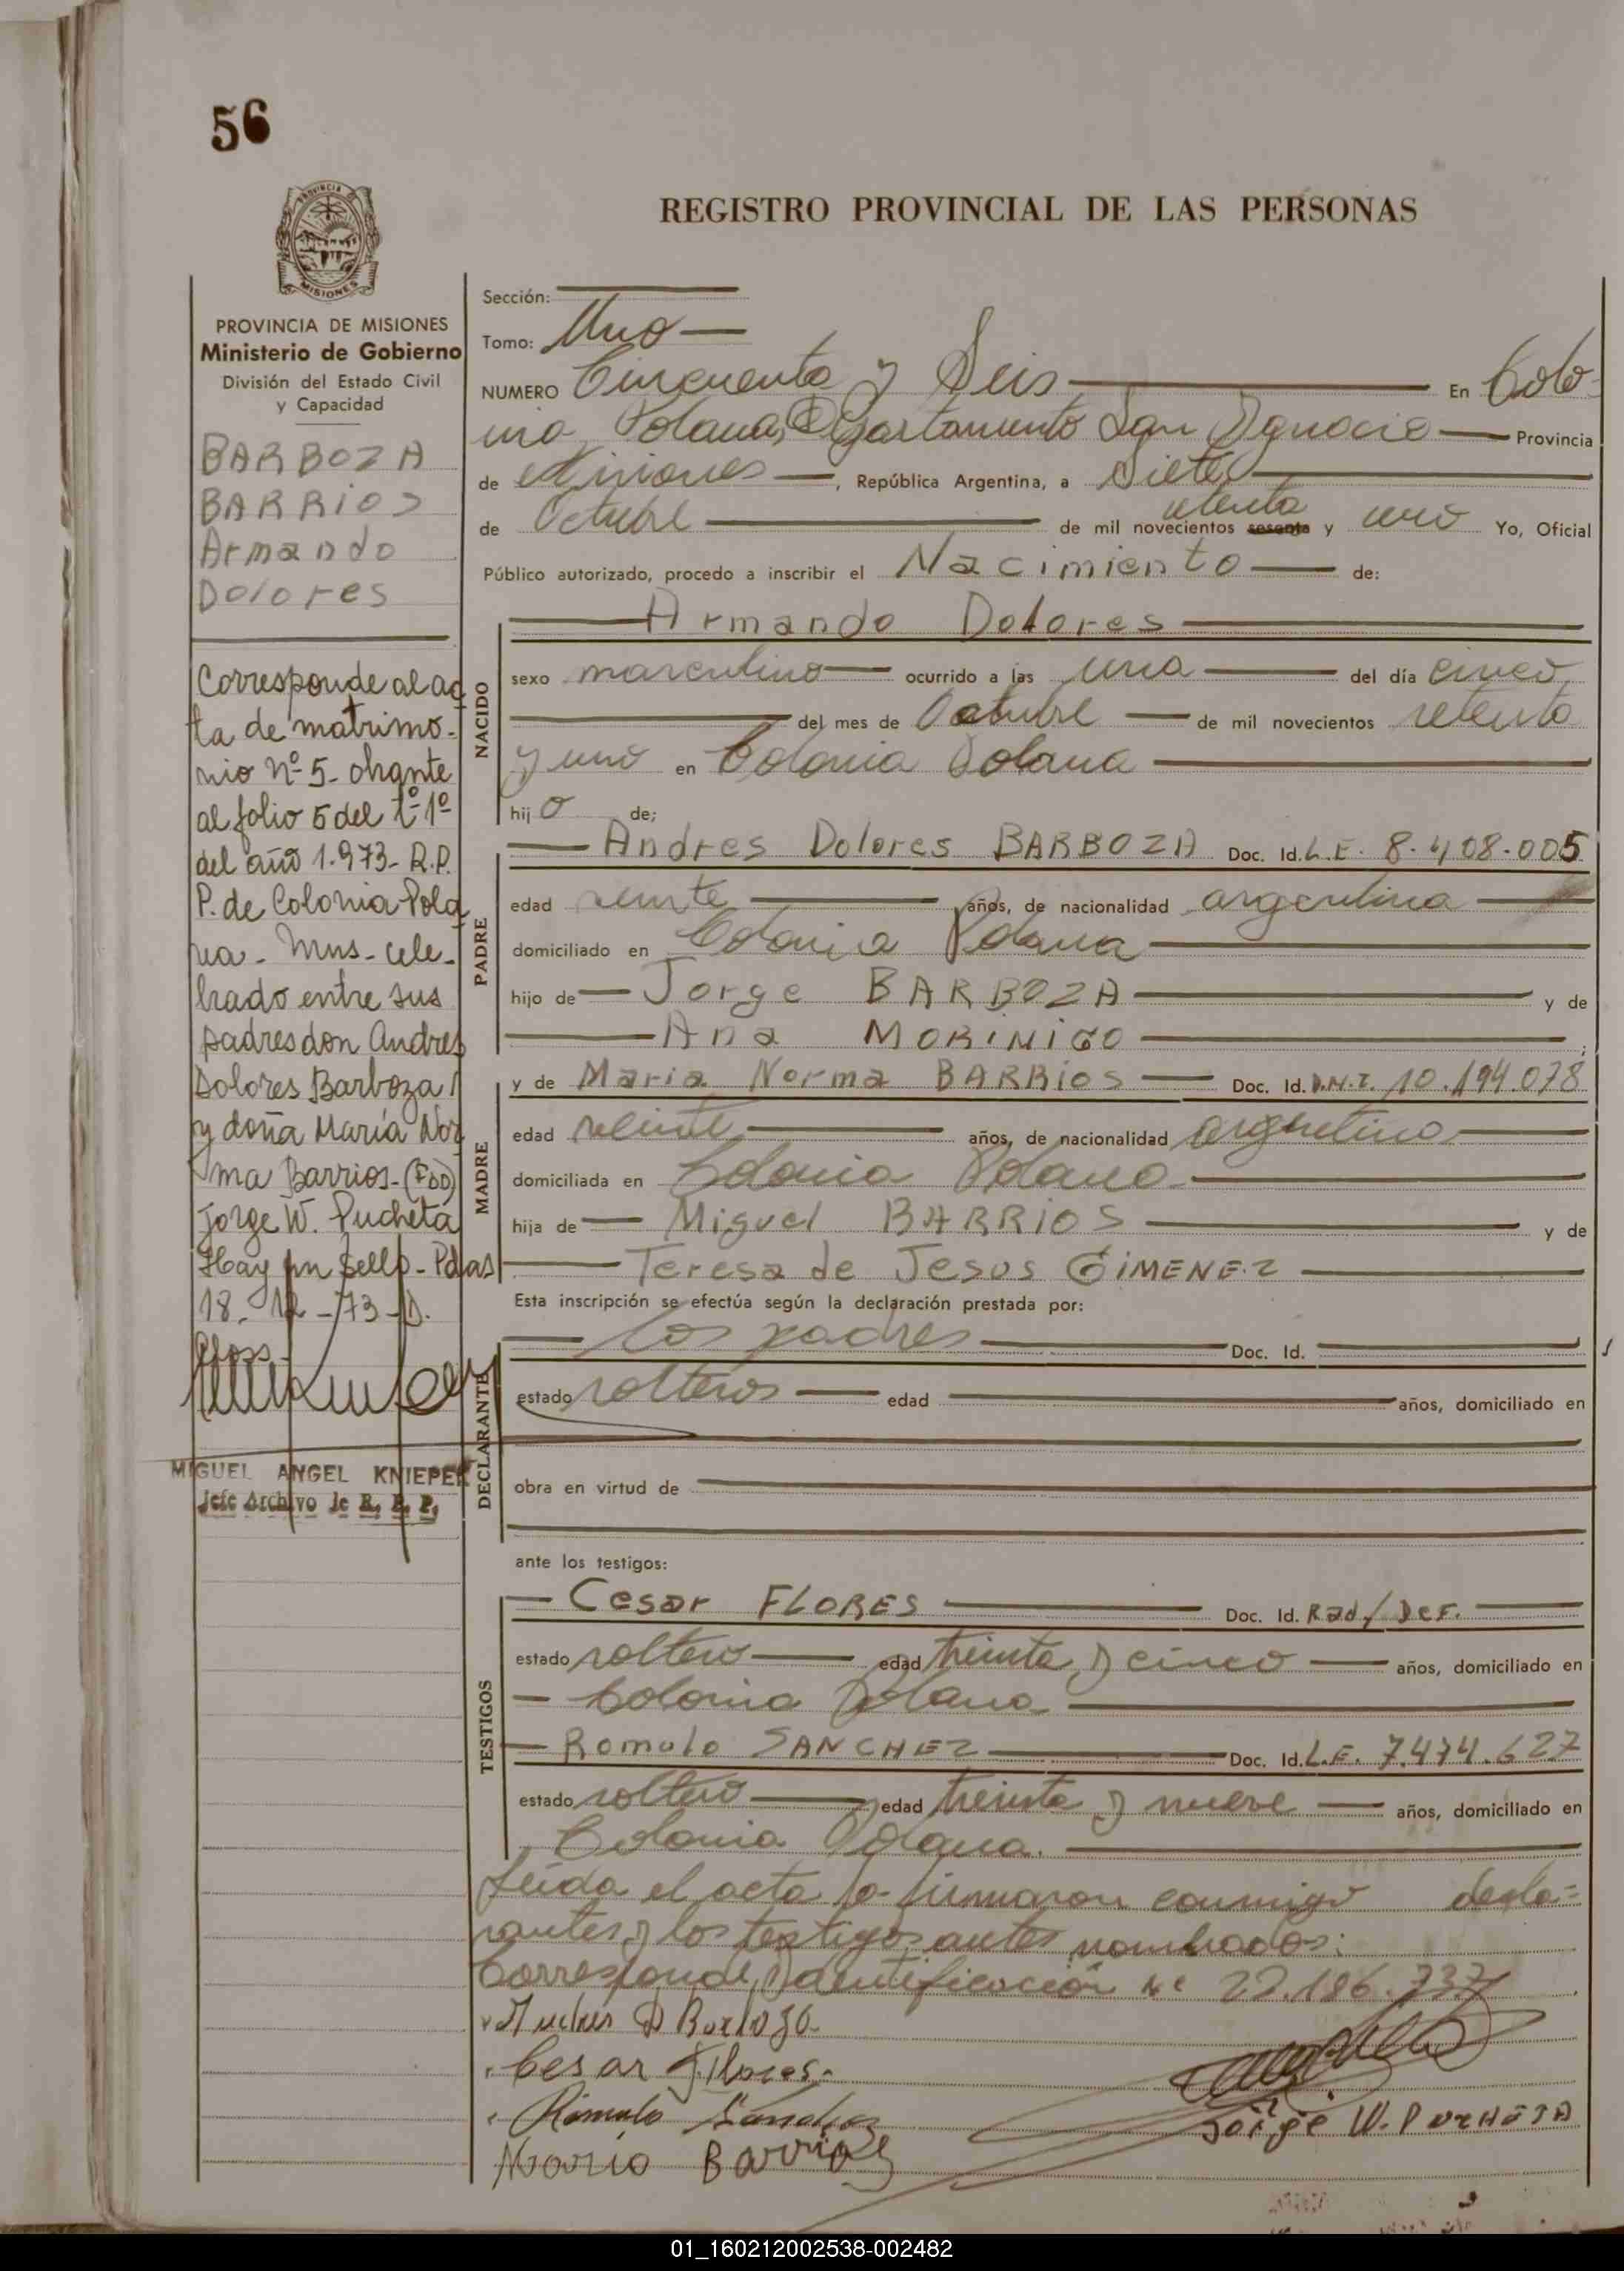 56
REGISTRO PROVINCIAL DE LAS PERSONAS
PROVINCIA DE MISIONES
MISIONES
PROVINCIA DE MISIONES
Ministerio de Gobierno
División del Estado Civil
y Capacidad
BARBOZA
BARRIOS
Armando
Dolores
Corresponde al ac
ta de matrimo-
nio nº 5- obrante
al folio 5 del tº 1º
del año 1.973- R.P.
P. de Colonia Pola
na- Mns- cele-
brado entre sus
padres don Andres
Dolores Barboza
y doña María Nor
ma Barrios- (FDO)
Jorge W. Pucheta
Hay un sello- Pdas
18- 12 -73-
MIGUEL ANGEL KNIEPER
Jefe Archivo de R. P. P.
Sección:
Tomo: Uno
NUMERO Cincuenta y Seis En Colo-
nia Polana, Departamento San Ignacio Provincia
de Misiones, República Argentina, a Siete
de Octubre de mil novecientos sesenta setenta y uno Yo, Oficial
Público autorizado, procedo a inscribir el Nacimiento de:
NACIDO
Armando Dolores
sexo masculino ocurrido a las una del día cinco
del mes de Octubre de mil novecientos setenta
y uno en Colonia Polana
hijo de;
PADRE
Andres Dolores BARBOZA Doc. Id. L.E. 8.408.005
edad veinte años, de nacionalidad argentina
domiciliado en Colonia Polana
hijo de Jorge BARBOZA y de
Ana MORINIGO;
MADRE
y de Maria Norma BARRIOS Doc. Id. D.N.I. 10.194.078
edad veinte años, de nacionalidad argentina
domiciliada en Colonia Polana
hija de Miguel BARRIOS y de
Teresa de Jesus GIMENEZ
Esta inscripción se efectúa según la declaración prestada por:
DECLARANTE
los padres Doc. Id.
estado solteros edad años, domiciliado en
obra en virtud de
ante los testigos:
TESTIGOS
Cesar FLORES Doc. Id. Rad/Def.
estado soltero edad treinta y cinco años, domiciliado en
Colonia Polana
Romulo SANCHEZ Doc. Id. L.E. 7.474.627
estado soltero edad treinta y nueve años, domiciliado en
Colonia Polana.
Leida el acta la firmaron conmigo decla-
rantes y los testigos antes nombrados:
Corresponde Identificación Nº 22.186.737
Andres D Barboza
Cesar Flores
Romulo Sanchez
Jorge W. PUCHETA
Maria Barrios
01_160212002538-002482